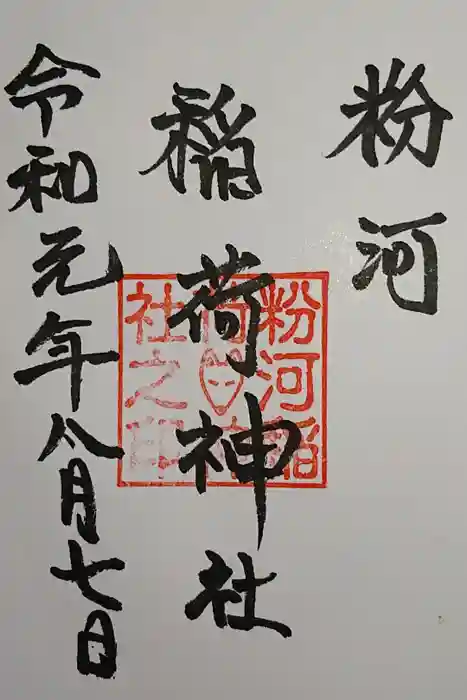 粉河
稲荷神社
令和元年八月七日
粉河稲
荷
社之印